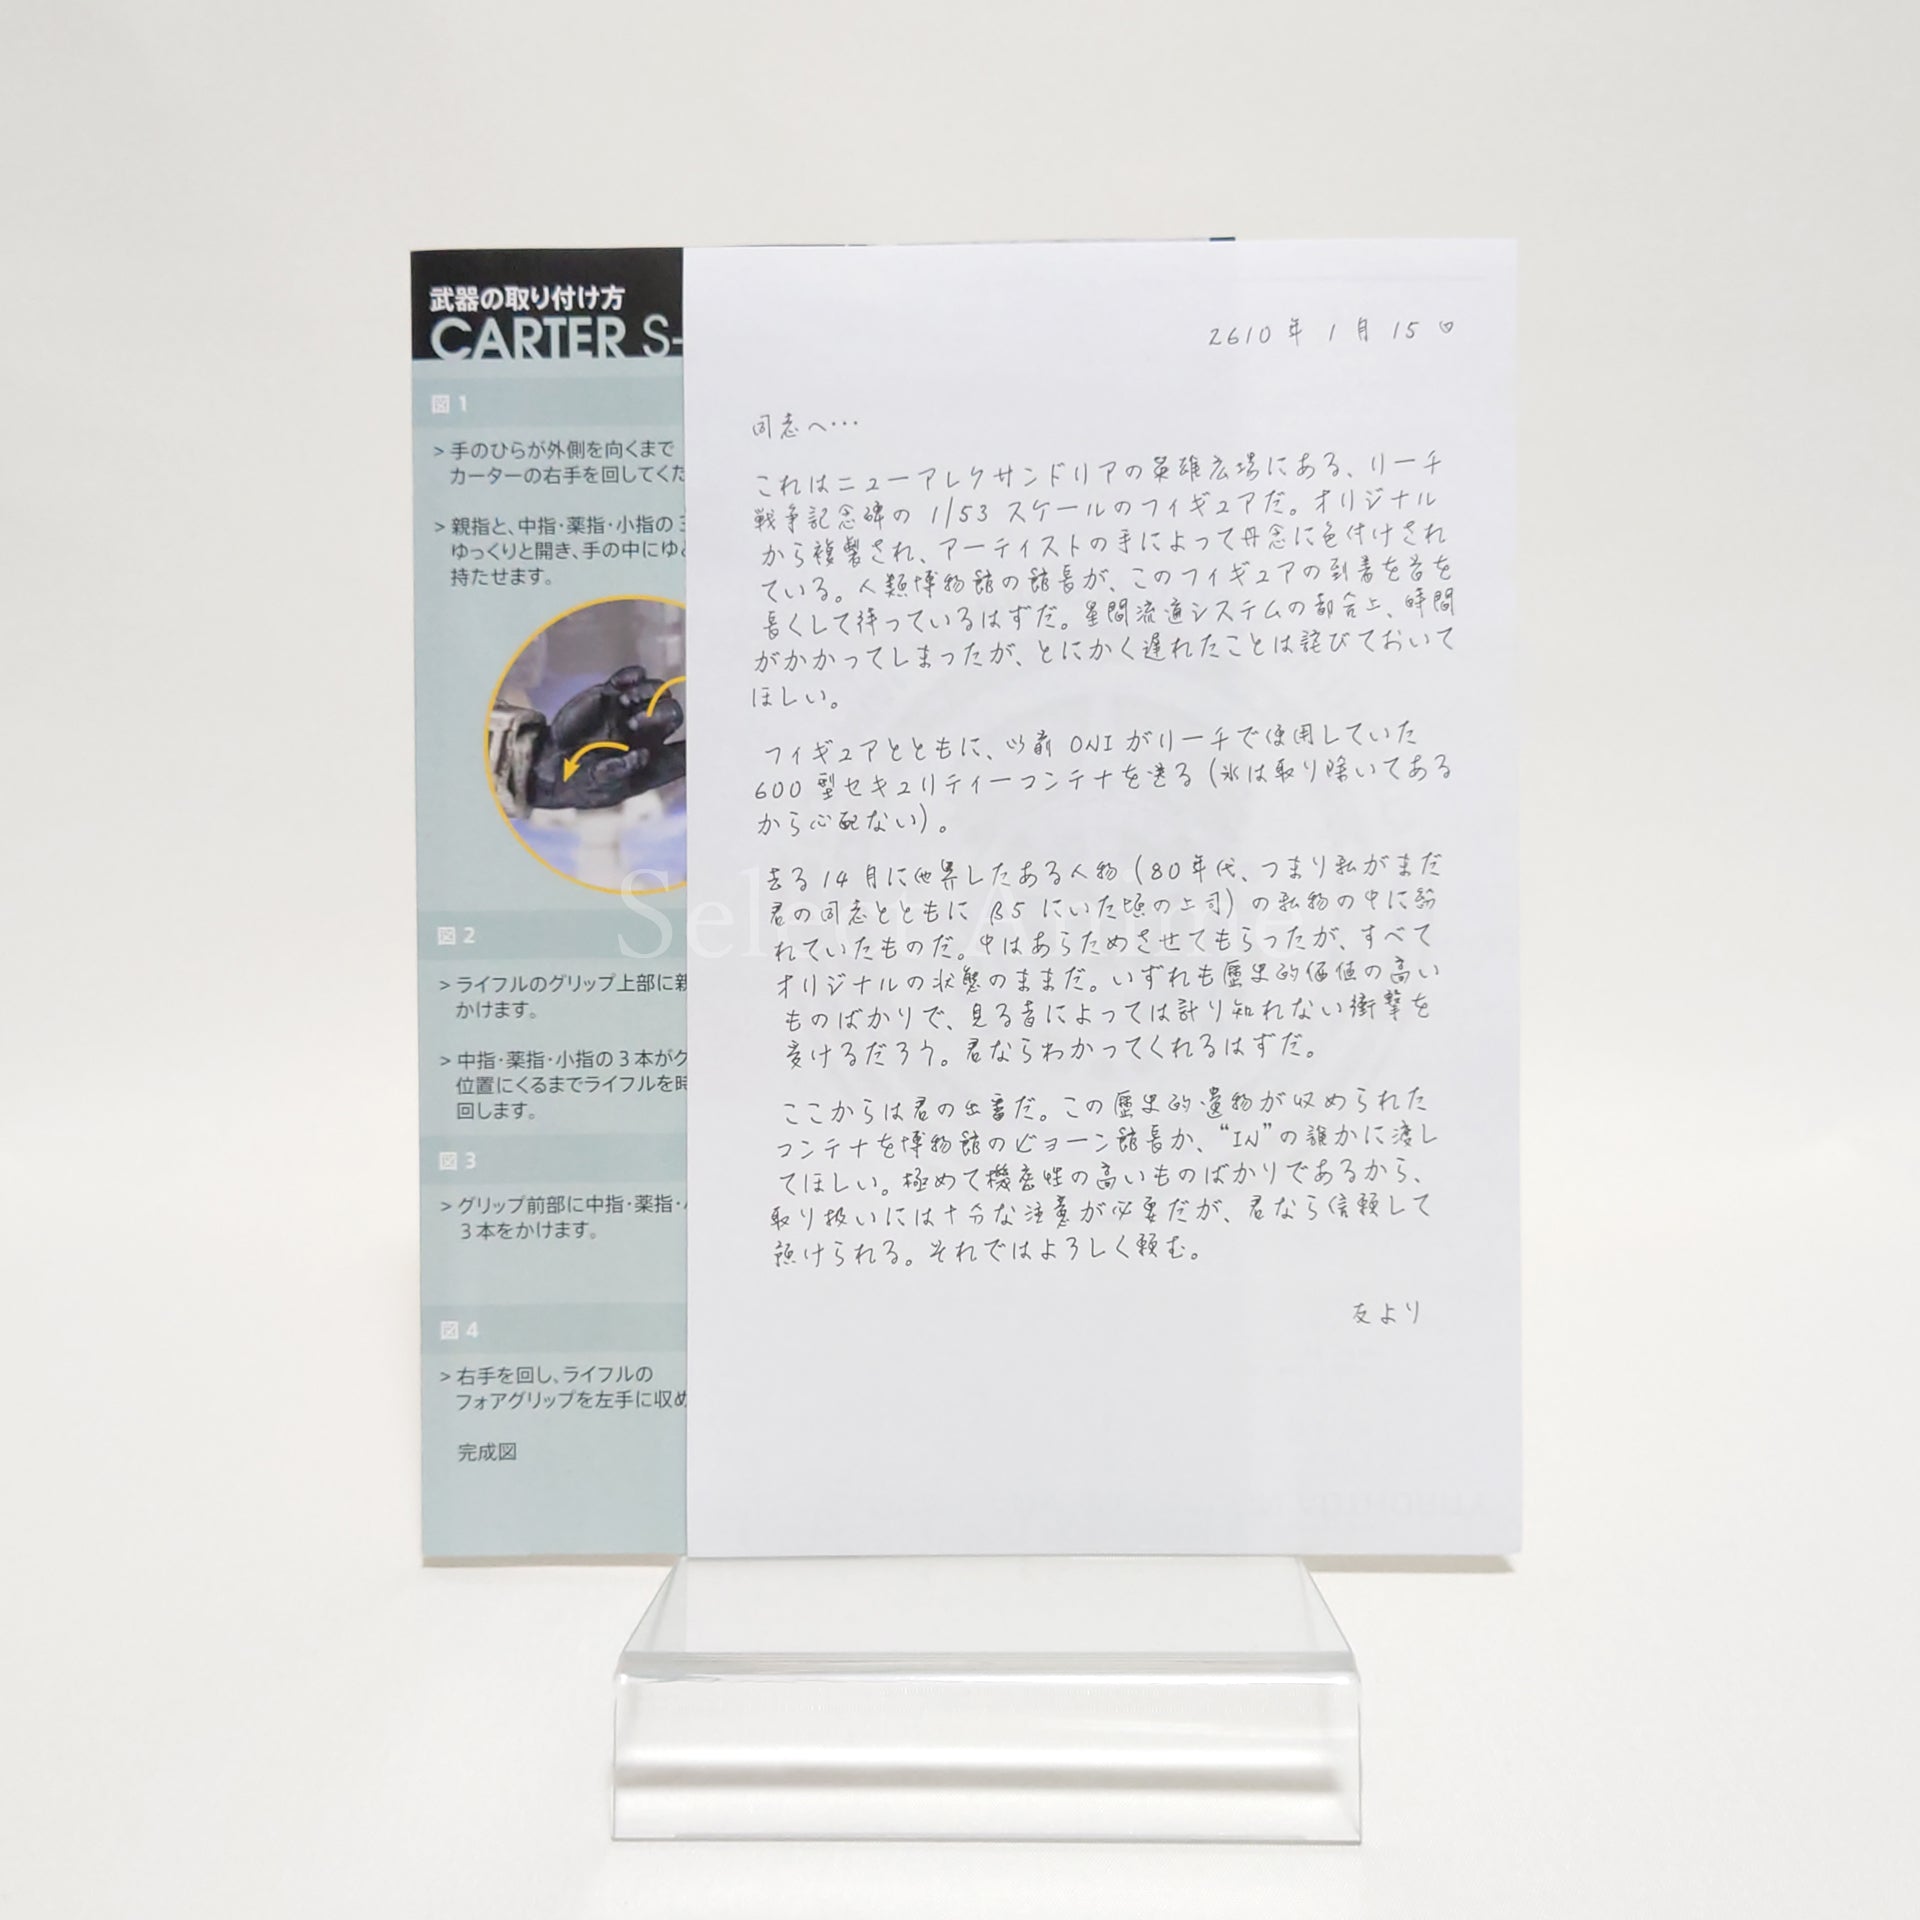 武器の取り付け方
CARTER S-
図 1
> 手のひらが外側を向くまで
カーターの右手を回してくだ
> 親指と、中指・薬指・小指の 3
ゆっくりと開き、手の中にゆ
持たせます。
図 2
> ライフルのグリップ上部に親
かけます。
> 中指・薬指・小指の 3 本がク
位置にくるまでライフルを時
回します。
図 3
> グリップ前部に中指・薬指・
3 本をかけます。
図 4
> 右手を回し、ライフルの
フォアグリップを左手に収め
完成図
2610 年 1 月 15 日
同志へ…
これはニューアレクサンドリアの英雄広場にある、リーチ
戦争記念碑の 1/53 スケールのフィギュアだ。オリジナル
から複製され、アーティストの手によって丹念に色付けされ
ている。人類博物館の館長が、このフィギュアの到着を首を
長くして待っているはずだ。星間流通システムの都合上、時間
がかかってしまったが、とにかく遅れたことは詫びておいて
ほしい。
フィギュアとともに、以前 ONI がリーチで使用していた
600 型セキュリティーコンテナを送る (氷は取り除いてある
から心配ない)。
去る 14 月に他界したある人物 (80 年代、つまり私がまだ
君の同志とともに B5 にいた頃の上司) の私物の中に紛
れていたものだ。中はあらためさせてもらったが、すべて
オリジナルの状態のままだ。いずれも歴史的価値の高い
ものばかりで、見る者によっては計り知れない衝撃を
受けるだろう。君ならわかってくれるはずだ。
ここからは君の出番だ。この歴史的遺物が収められた
コンテナを博物館のビョーン館長か、“IN”の誰かに渡し
てほしい。極めて機密性の高いものばかりであるから、
取り扱いには十分な注意が必要だが、君なら信頼して
預けられる。それではよろしく頼む。
友より
Select Anime